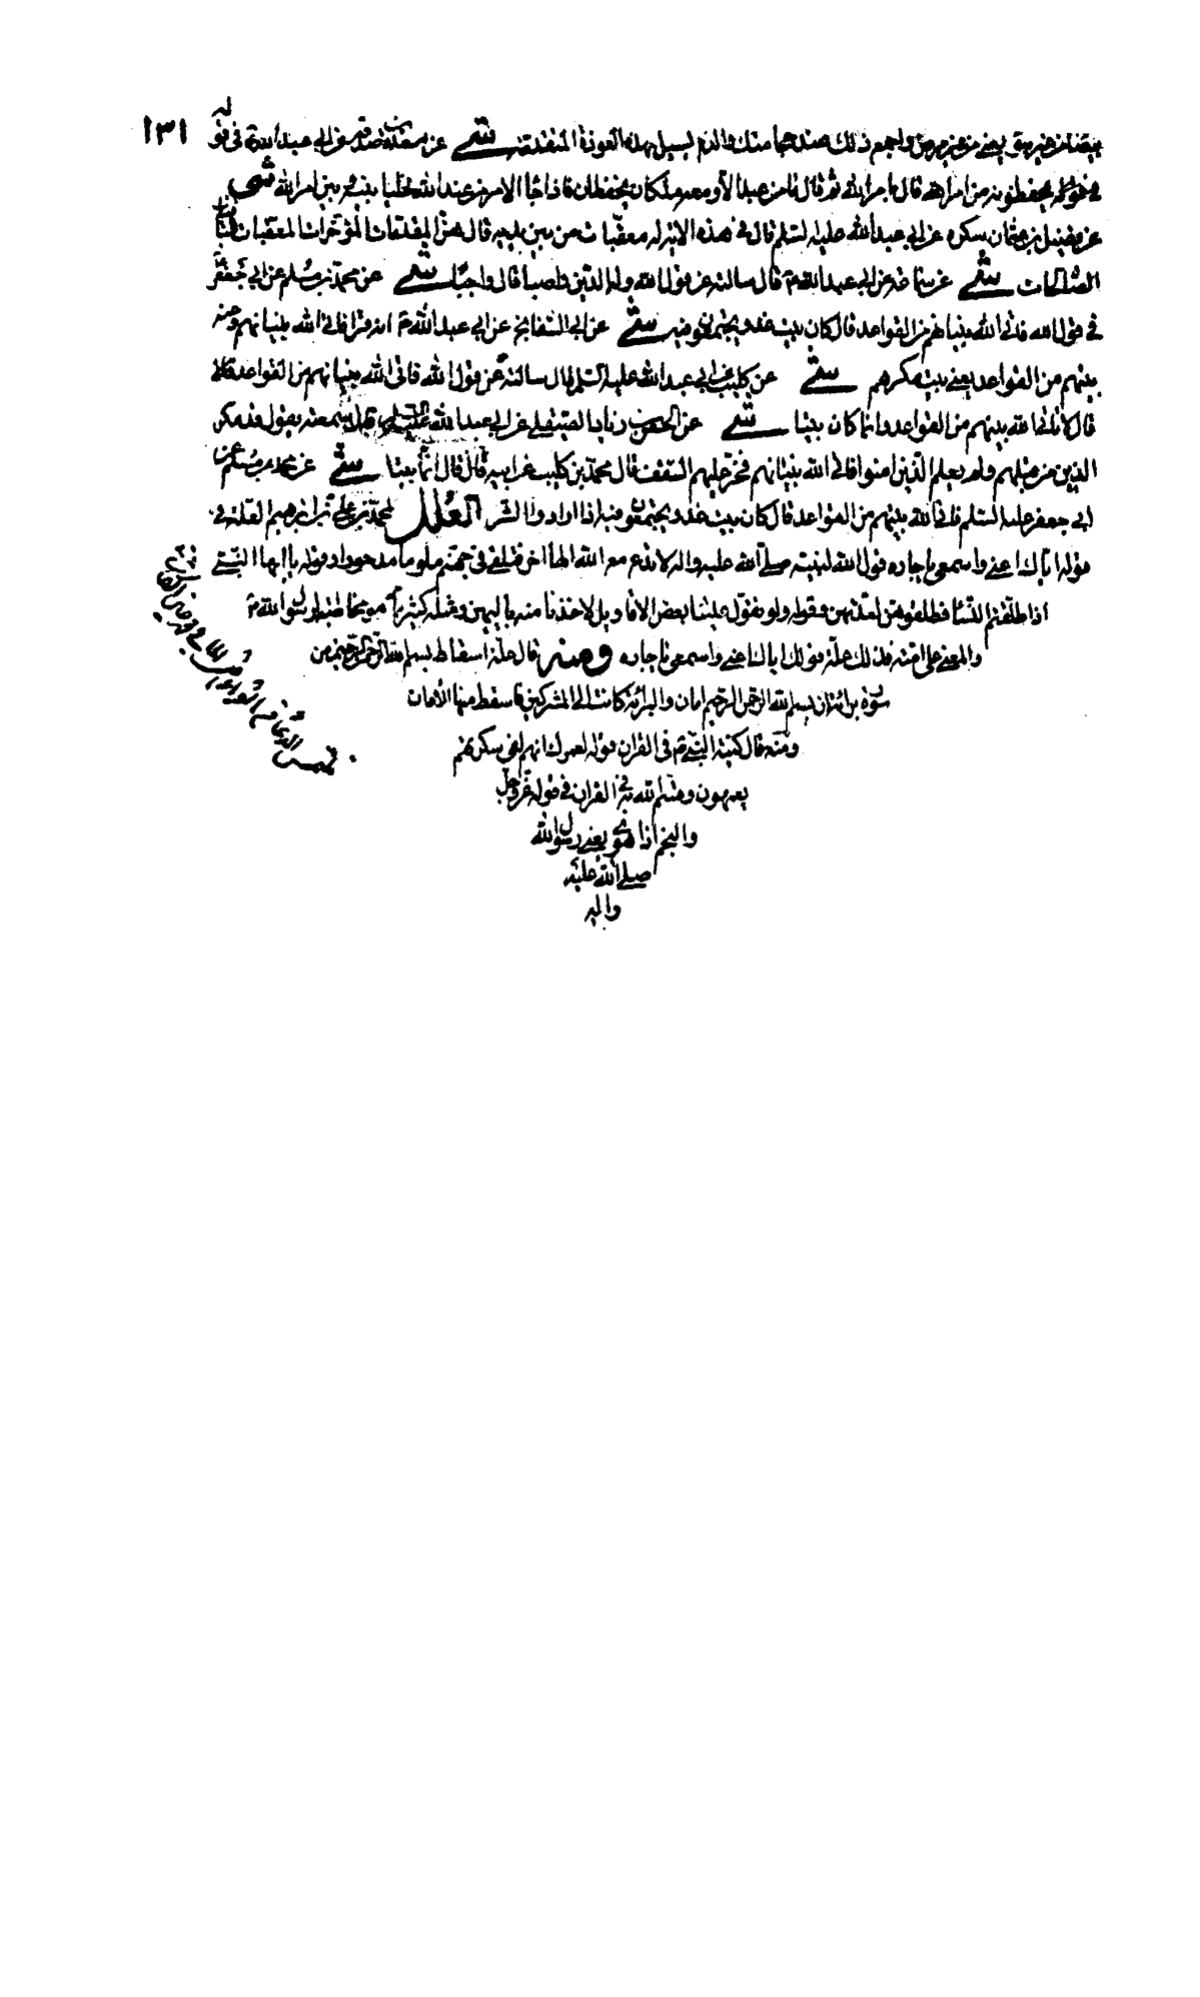 ١٣١
بيضا من غير سوء يعني من غير برص واجمع ذلك عند حجامتك والدم يسيل بهذه العوذة المتقدمة شى عن مسعدة بن صدقة عن ابي عبد الله ع في قوله
يحفظونه من امر الله قال بامر الله ثم قال ما من عبد الا ومعه ملكان يحفظانه فاذا جاء الامر من عند الله خليا بينه وبين امر الله شى
عن فضيل بن عثمان سكره عن ابي عبد الله عليه السلم قال في هذه الاية له معقبات من بين يديه قال هن المقدمات المؤخرات المعقبات الباقيات
الصالحات شى عن سماعة عن ابي عبد الله ع قال سالته عن قول الله وله الدين واصبا قال واجبا شى عن محمد بن مسلم عن ابي جعفر
في قول الله فاتى الله بنيانهم من القواعد قال كان بيت غدر يجتمعون فيه شى عن ابي السفاتج عن ابي عبد الله ع انه قرا فاتى الله بنيانهم ومنه
بيتهم من القواعد يعني بيت مكرهم شى عن كليب عن ابي عبد الله عليه السلم قال سالته عن قول الله فاتى الله بنيانهم من القواعد قال
قال لا فاتى الله بيتهم من القواعد وانما كان بيتا شى عن الحسن بن زياد الصيقل عن ابي عبد الله عليه السلم قال سمعته يقول قد مكر
الذين من قبلهم ولم يعلم الذين امنوا فاتى الله بنيانهم فخر عليهم السقف قال محمد بن كليب عن ابيه قال قال انما بيتا شى عن محمد بن مسلم عن
ابي جعفر عليه السلم فاتى الله بيتهم من القواعد قال كان بيت غدر يجتمعون فيه اذا ارادوا الشر العلل لمحمد بن علي بن ابرهيم العلة في
قوله اياك اعني واسمعي يا جاره قول الله لنبيه صلى الله عليه واله لا تدع مع الله الها اخر فتلقى في جهنم ملوما مدحورا وقوله يا ايها النبي
اذا طلقتم النسا فطلقوهن لعدتهن وقوله ولو تقول علينا بعض الاقاويل لاخذنا منه باليمين ومثله كثير مما هو مخاطبة لرسول الله ص
والمعنى على امته فذلك علة قولك اياك اعني واسمعي يا جاره ومنه قال علة اسقاط بسم الله الرحمن الرحيم من
سورة براءة ان بسم الله الرحمن الرحيم امان والبراءة كانت الى المشركين فاسقط منها الأمان
ومنه قال كنية النبي ص في القران قوله لعمرك انهم لفي سكرتهم
يعمهون وقسم الله به في القران في قوله عز وجل
والنجم اذا هوى يعني رسول الله
صلى الله عليه
واله